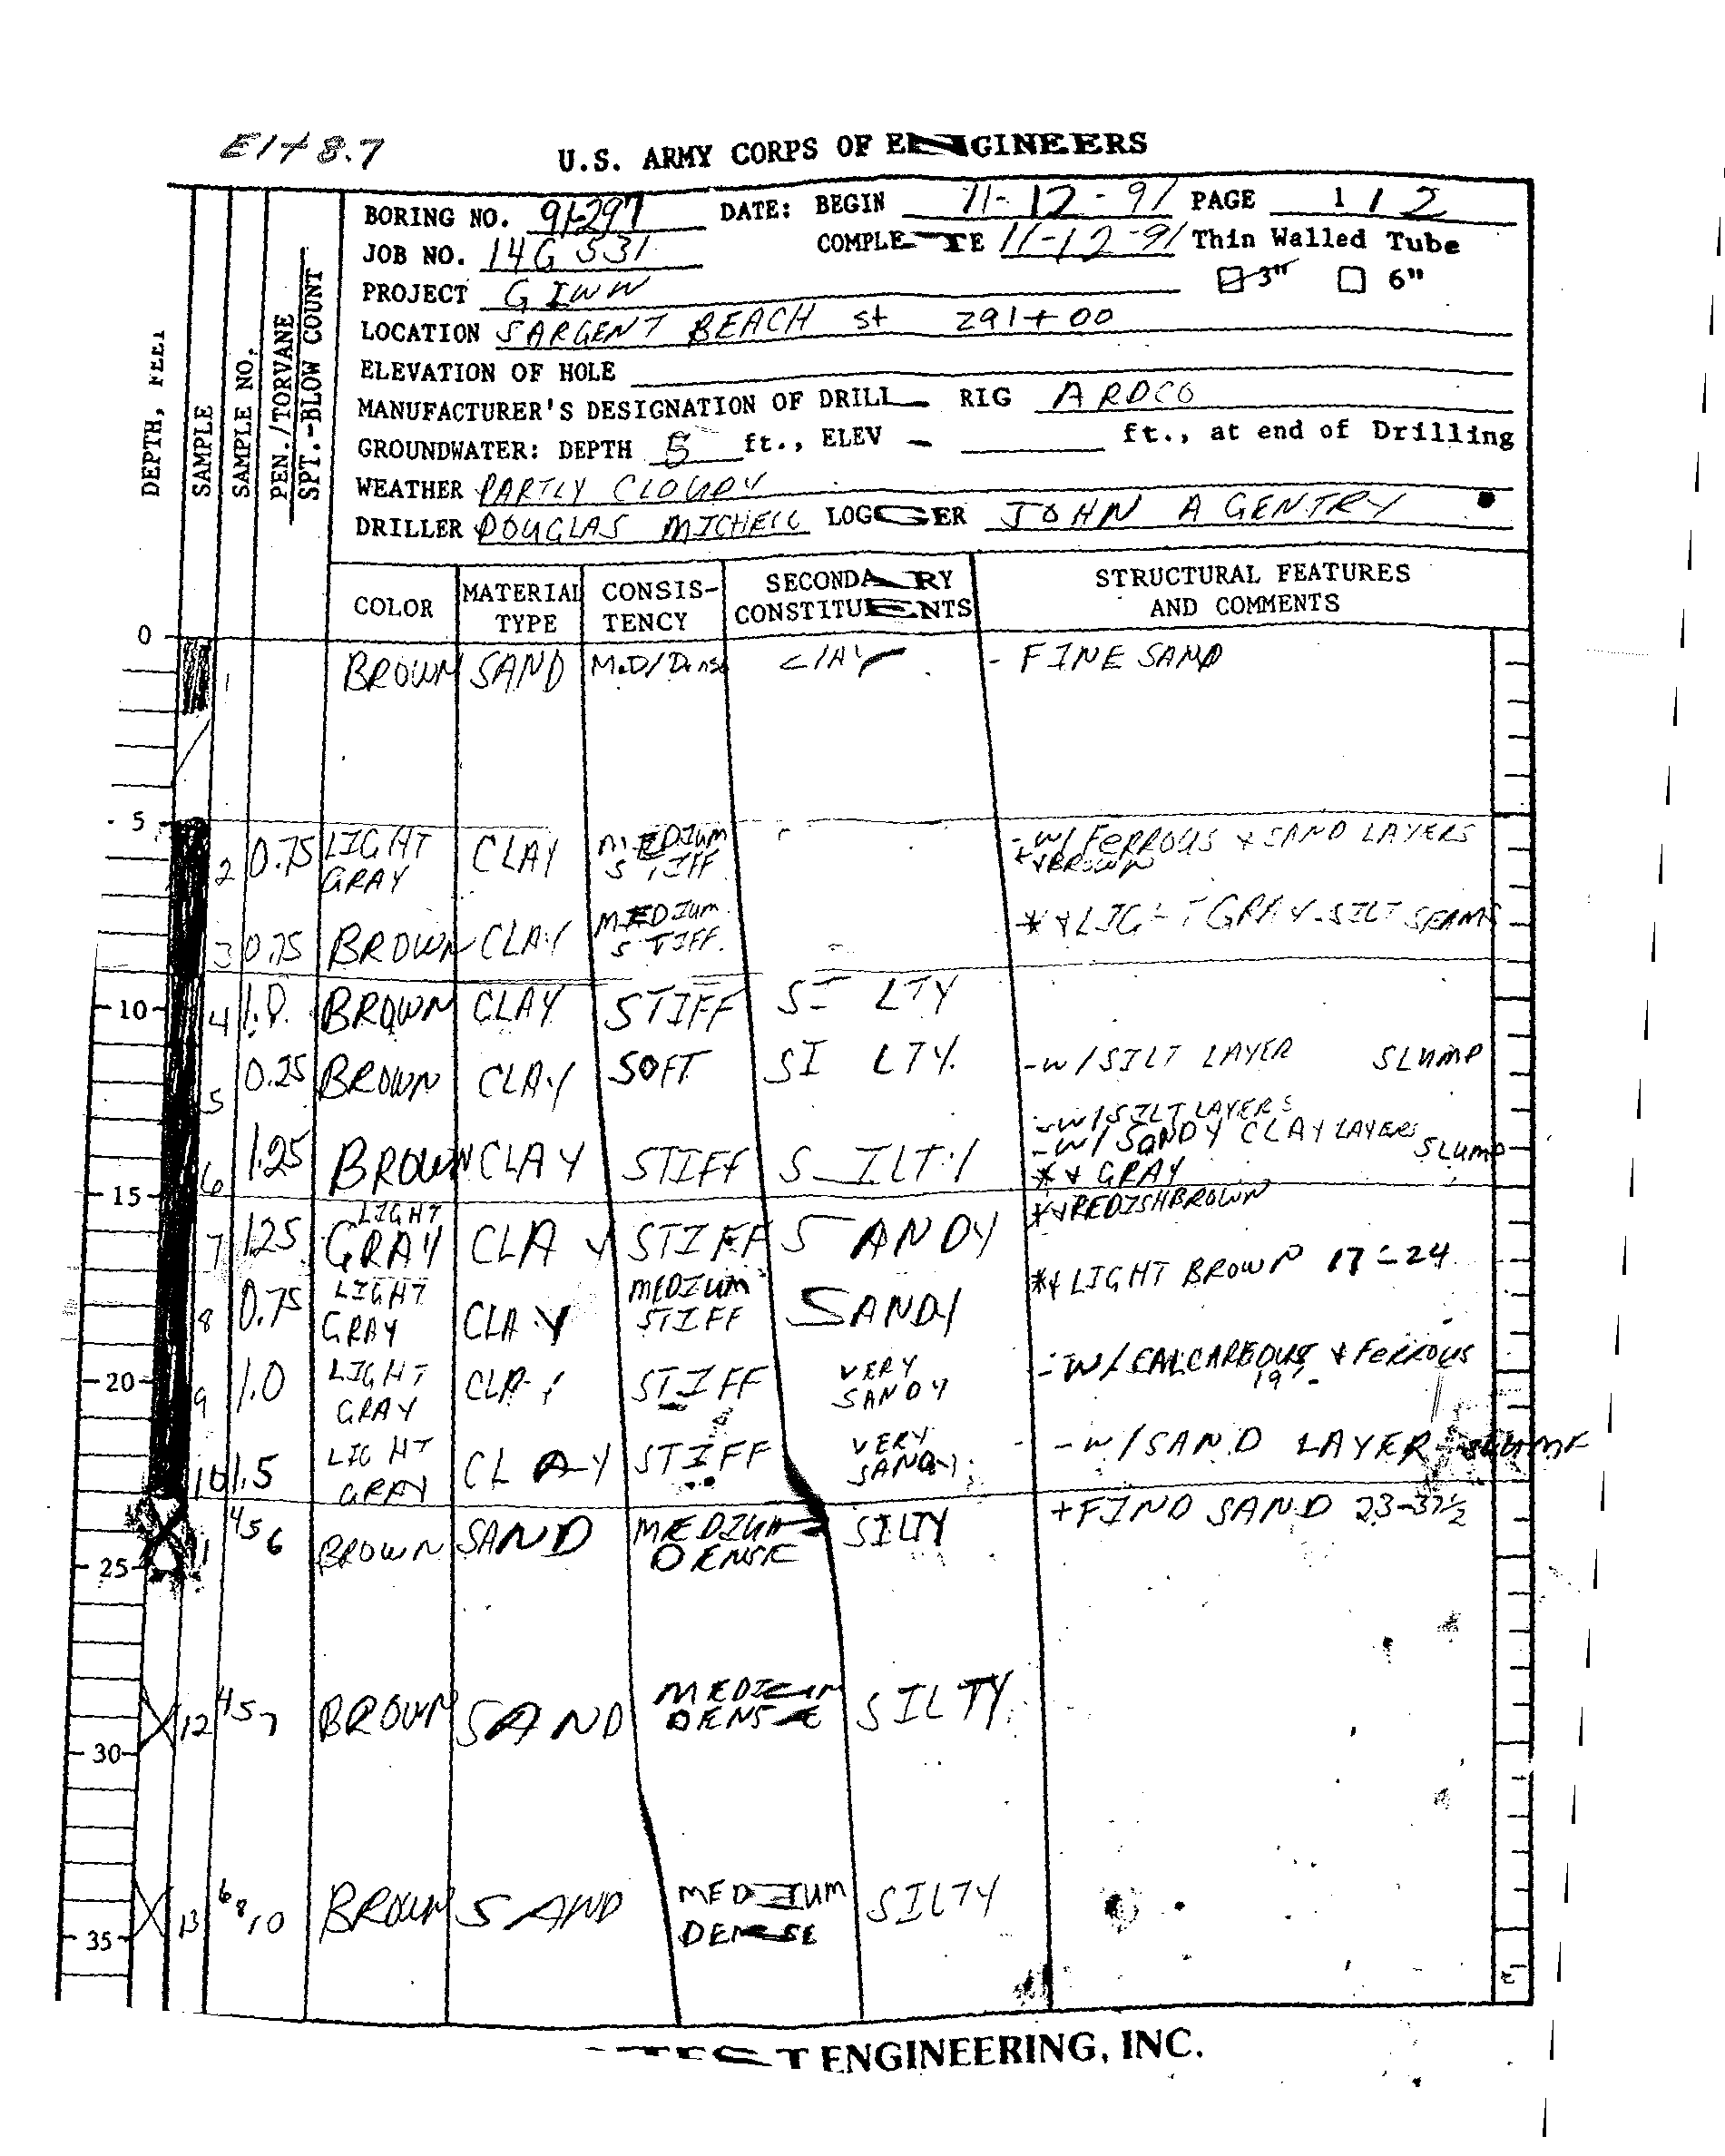 El + 8.7
U.S. ARMY CORPS OF ENGINEERS
BORING NO. 91-297 DATE: BEGIN 11-12-91 PAGE 1 / 2
JOB NO. 14G 531 COMPLETE 11-12-91 Thin Walled Tube
PROJECT GIWW 3" 6"
LOCATION SARGENT BEACH St 291+00
ELEVATION OF HOLE
MANUFACTURER'S DESIGNATION OF DRILL RIG ARDCO
GROUNDWATER: DEPTH 5 ft., ELEV ft., at end of Drilling
WEATHER PARTLY CLOUDY
DRILLER DOUGLAS MICHELL LOGGER JOHN A GENTRY
DEPTH, FEET
SAMPLE
SAMPLE NO.
PEN./TORVANE
SPT.-BLOW COUNT
COLOR MATERIAL TYPE CONSIS-TENCY SECONDARY CONSTITUENTS STRUCTURAL FEATURES AND COMMENTS
0
1 BROWN SAND MED/Dense CLAY - FINE SAND
5
2 0.75 LIGHT GRAY CLAY MEDIUM STIFF - W/ FERROUS + SAND LAYERS
*+BROWN
3 0.75 BROWN CLAY MEDIUM STIFF *+LIGHT GRAY-SILT SEAMS
10
4 1.0 BROWN CLAY STIFF SILTY
5 0.25 BROWN CLAY SOFT SILTY -W/SILT LAYER SLUMP
-W/SILT LAYERS
6 1.25 BROWN CLAY STIFF SILTY -W/ SANDY CLAY LAYERS SLUMP
*+ GRAY
15
*+REDISHBROWN
7 1.25 LIGHT GRAY CLAY STIFF SANDY
*+LIGHT BROWN 17-24
8 0.75 LIGHT GRAY CLAY MEDIUM STIFF SANDY
20
9 1.0 LIGHT GRAY CLAY STIFF VERY SANDY -W/CALCAREOUS + FERROUS
19'-
10 1.5 LIGHT GRAY CLAY STIFF VERY SANDY -W/SAND LAYER SLUMP
11 4 5 6 BROWN SAND MEDIUM DENSE SILTY +FIND SAND 23-37½
25
12 4 5 7 BROWN SAND MEDIUM DENSE SILTY
30
13 6 8 10 BROWN SAND MEDIUM DENSE SILTY
35
ENGINEERING, INC.